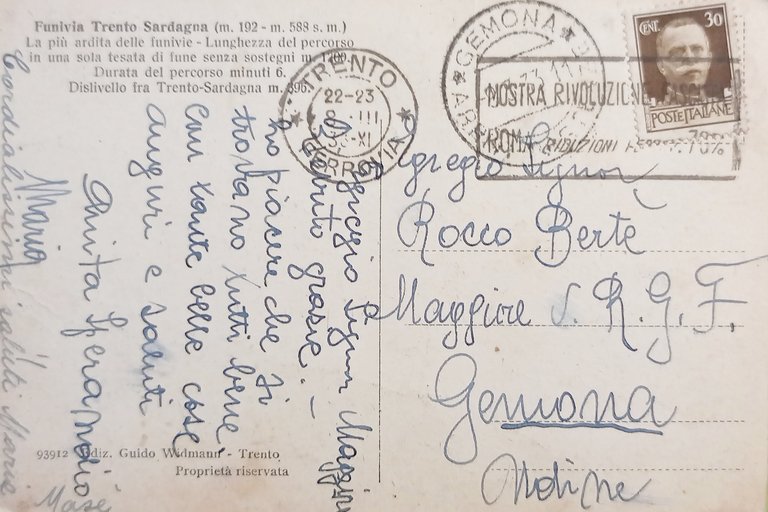 Funivia Trento Sardagna (m. 192 - m. 588 s. m.)
La più ardita delle funivie - Lunghezza del percorso
in una sola tesata di fune senza sostegni m. 1200.
Durata del percorso minuti 6.
Dislivello fra Trento-Sardagna m. 396.
Egregio Signor Maggiore
grazie. -
ho piacere che si
trovano tutti bene,
con tante belle cose
auguri e saluti
Anita Sperandio
Mario
Cordialissimi saluti Maria
Masè
93912 Ediz. Guido Widmann - Trento
Proprietà riservata
TRENTO
22-23
III
XI
FERROVIA
GEMONA
MOSTRA RIVOLUZIONE FASCISTA
ROMA RIDUZIONI FERROV. 70%
CENT. 30
POSTE ITALIANE
Egregio Signor
Rocco Bertè
Maggiore S. R. G. F.
Gemona
Udine